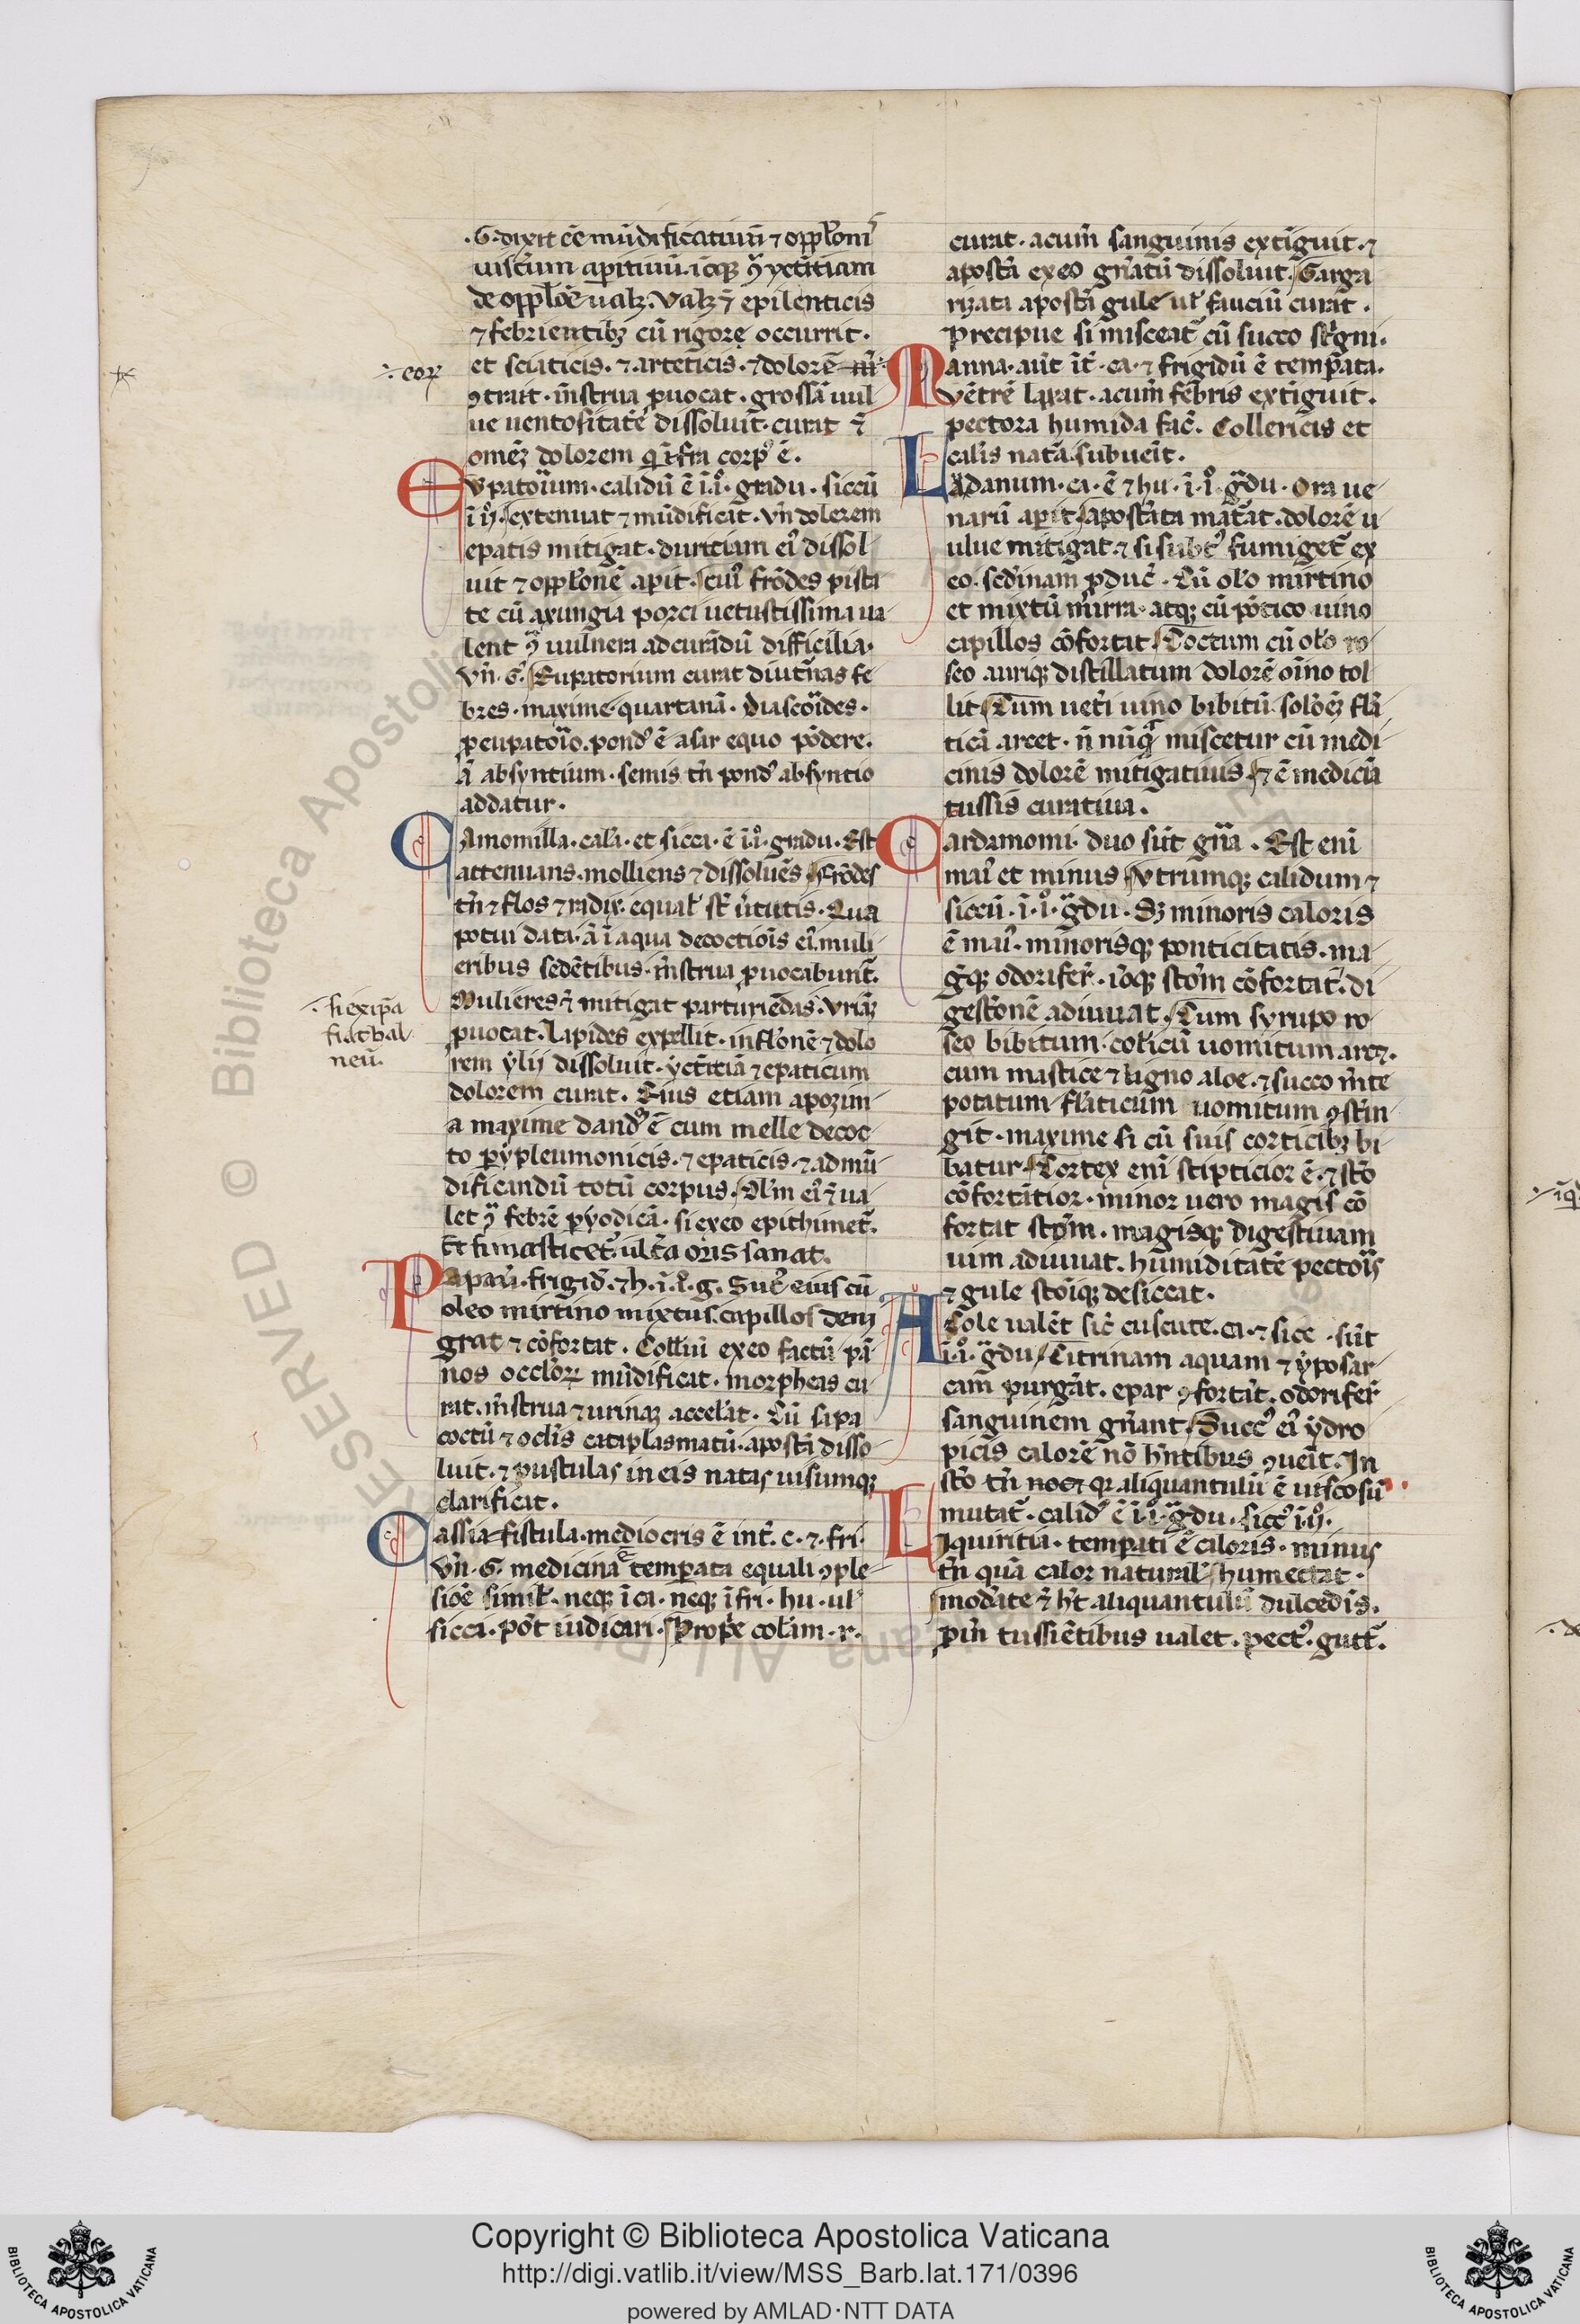 .G. dixit ēē mūdificatiuū ⁊ oppłoniˢ
uisc̄um aꝑitiuū. iōqꝫ ꝯ̄ yct̄itiam
de oppłōe ualꝫ. Valꝫ ⁊̄ epilenticis
⁊ febrientibꝫ cū rigore occurrit.
et sciaticis. ⁊ arteticis. ⁊ dolorē
ꝯtrait. m̄strua ꝓuocat. grossā uul
ue uentositatē dissoluit. curat ⁊̄
om̄eꝫ dolorem q̄ īfra corpꝰ ē.
Eupatoꝛ̄ium. calidū ē ī.i°. gradu. siccū
ī ij°. extenuat ⁊ mūdificat. vn̄ dolorem
epatis mitigat. duritiam eiꝰ dissol
uit ⁊ oppłonē aꝑit. cuiꝰ frōdes pista
te cū axungia porci uetustissima ua
lent ꝯ̄ uulnera ad curādū difficilia.
vn̄. G. Eupatorium curat diutnas fe
bres. maxime quartanā. Diascoꝛ̄ides.
ꝓ eupatoꝛ̄io. pondꝰ ē asar equo pōdere.
ā absyntium. semis tn̄ pondꝰ absyntio
addatur.
Camomilla. cała. et sicca. ē ī.i°. gradu. Est
attenuans. molliens ⁊ dissoluēs. Frōdes
tn̄ ⁊ flos ⁊ radix. equał st̄ ūtutis. Qua
potui data. ā ī aqua decoctiōis eiꝰ. muli
eribus sedētibus. m̄strua ꝓuocabunt̄.
Mulieres ⁊̄ mitigat parturiēdas. Vrināꝫ
ꝓuocat. Lapides expellit. inflonē ⁊ dolo
rem ylij dissoluit. yct̄itiā ⁊ epaticum
dolorem curat. Eius etiam apozim
a maxime dandꝰ ē cum melle decoc
to ꝑypleumonicis. ⁊ epaticis. ⁊ ad mū
dificandū totū corpus. Olm̄ eiꝰ ⁊̄ ua
let ꝯ̄ febrē ꝑyodicā. si ex eo epithimet̄.
Et si masticet̄. ulc̄a oris sanat.
Papauꝰ. frigid̄. ⁊ h. ī. i°. g. Succꝰ eius cū
oleo mirtino mixtus. capillos deni
grat ⁊ cōfortat. Colliriū ex eo factū pā
nos occloꝝ mūdificat. morpheas cu
rat. m̄strua ⁊ urinaꝫ accełat. Cū sapa
coctū ⁊ oclis cataplasmatū. apost̄a disso
luit. ⁊ pustulas in eis natas uisumqꝫ
clarificat.
Cassia fistula. mediocris ē int̄. c. ⁊. fri.
vn̄. G. medicina ē temꝑata equali ꝯple
siōē simił. neqꝫ ī ca. neqꝫ ī fri. hu. ul
sicca. pōt iudicari. Prop̄e col̄am. r.
∴ corꝑ
∴ si ex ip̄a
fiat bal
neū.
curat. acum̄ sanguinis extīguit. ⁊
apost̄a ex eo gn̄atū dissoluit. Garga
rizata apost̄a gule ul̄ fauciū curat.
precipue si misceat̄ cū succo st̄gni.
Manna. aut̄ īt̄. ca. ⁊ frigidū ē temꝑata.
vētrē laxat. acum̄ febris extīguit.
pectora humida fac̄. Collericis et
calis nata subueīt.
Ladanum. ca. ē ⁊ hu. ī. i°. gͣdu. Ora ue
narū aꝑit. apost̄ata mat̄at. dolorē u
ulue mitigat. ⁊ si subtꝰ fumiget̄ ex
eo. sedinam ꝓduc̄. Cū oło mirtino
et mixtū mirra. atqꝫ cū pōtico uino
capillos cōfortat. Coctum cū oło ro
seo auriqꝫ distillatum dolorē oīno tol
lit. Cum uetī uino bibitū. solōeꝫ fla
ticā arcet. n̄ nūqͣ miscetur cū medi
cinis dolorē mitigatiuis. ⁊ ē medicīa
tussis curatiua.
Cardamomi. duo sūt gn̄a. Est eni
maiꝰ et minus. Vtrumqꝫ calidum ⁊
siccū. ī. i°. gͣdu. Sꝫ minoris caloris
ē maiꝰ. minorisqꝫ ponticitatis. ma
gqꝫ odorifer̄. iōqꝫ stom̄ cōfortat̄. di
gestōnē adiuuat. Cum syrupo ro
seo bibitum. colicū uomitum arcꝫ.
cum mastice ⁊ ligno aloe. ⁊ succo mte
potatum. flaticum uomitum ꝯst̄in
git. maxime si cū suis corticibꝫ bi
batur. Cortex eni stipticior ē. ⁊ sto
cōfortātior. minor uero magis cō
fortat stom̄. magisqꝫ digestiuam
uim adiuuat. humiditatē pectoꝛ̄is
⁊ gule stoīqꝫ desiccat.
Acole ualēt sic̄ cuscute. ca. ⁊ sicc. sūt
ī. i°. gͣdu. Citrinam aquam ⁊ yposar
cam purgāt. epar ꝯfortāt. odorifer̄
sanguinem gn̄ant. Succꝰ eiꝰ ydro
picis calorē nō hn̄tibus ꝯueīt. In
sto tn̄ nocꝫ qꝛ aliquantulū ē uiscosū
mutat̄. calidꝰ ē ī. i°. gͣdu. siccꝰ ī. ij°.
Liquiritia. temꝑati ē caloris. minus
tn̄ quā calor natural. humectat.
modate ⁊̄ ht aliquantulū dulcedīs.
ꝓin̄ tussiētibus ualet. pectꝰ. gutt̄.
Copyright © Biblioteca Apostolica Vaticana
http://digi.vatlib.it/view/MSS_Barb.lat.171/0396
powered by AMLAD·NTT DATA